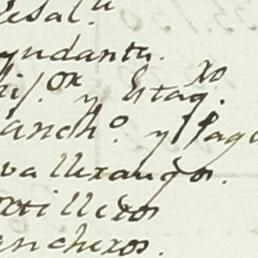 esal.ᵘ
yudante.
y Estaq.ˣᵒ
anch.º y Pag
vallexangos.
rtilleros
ancheros.